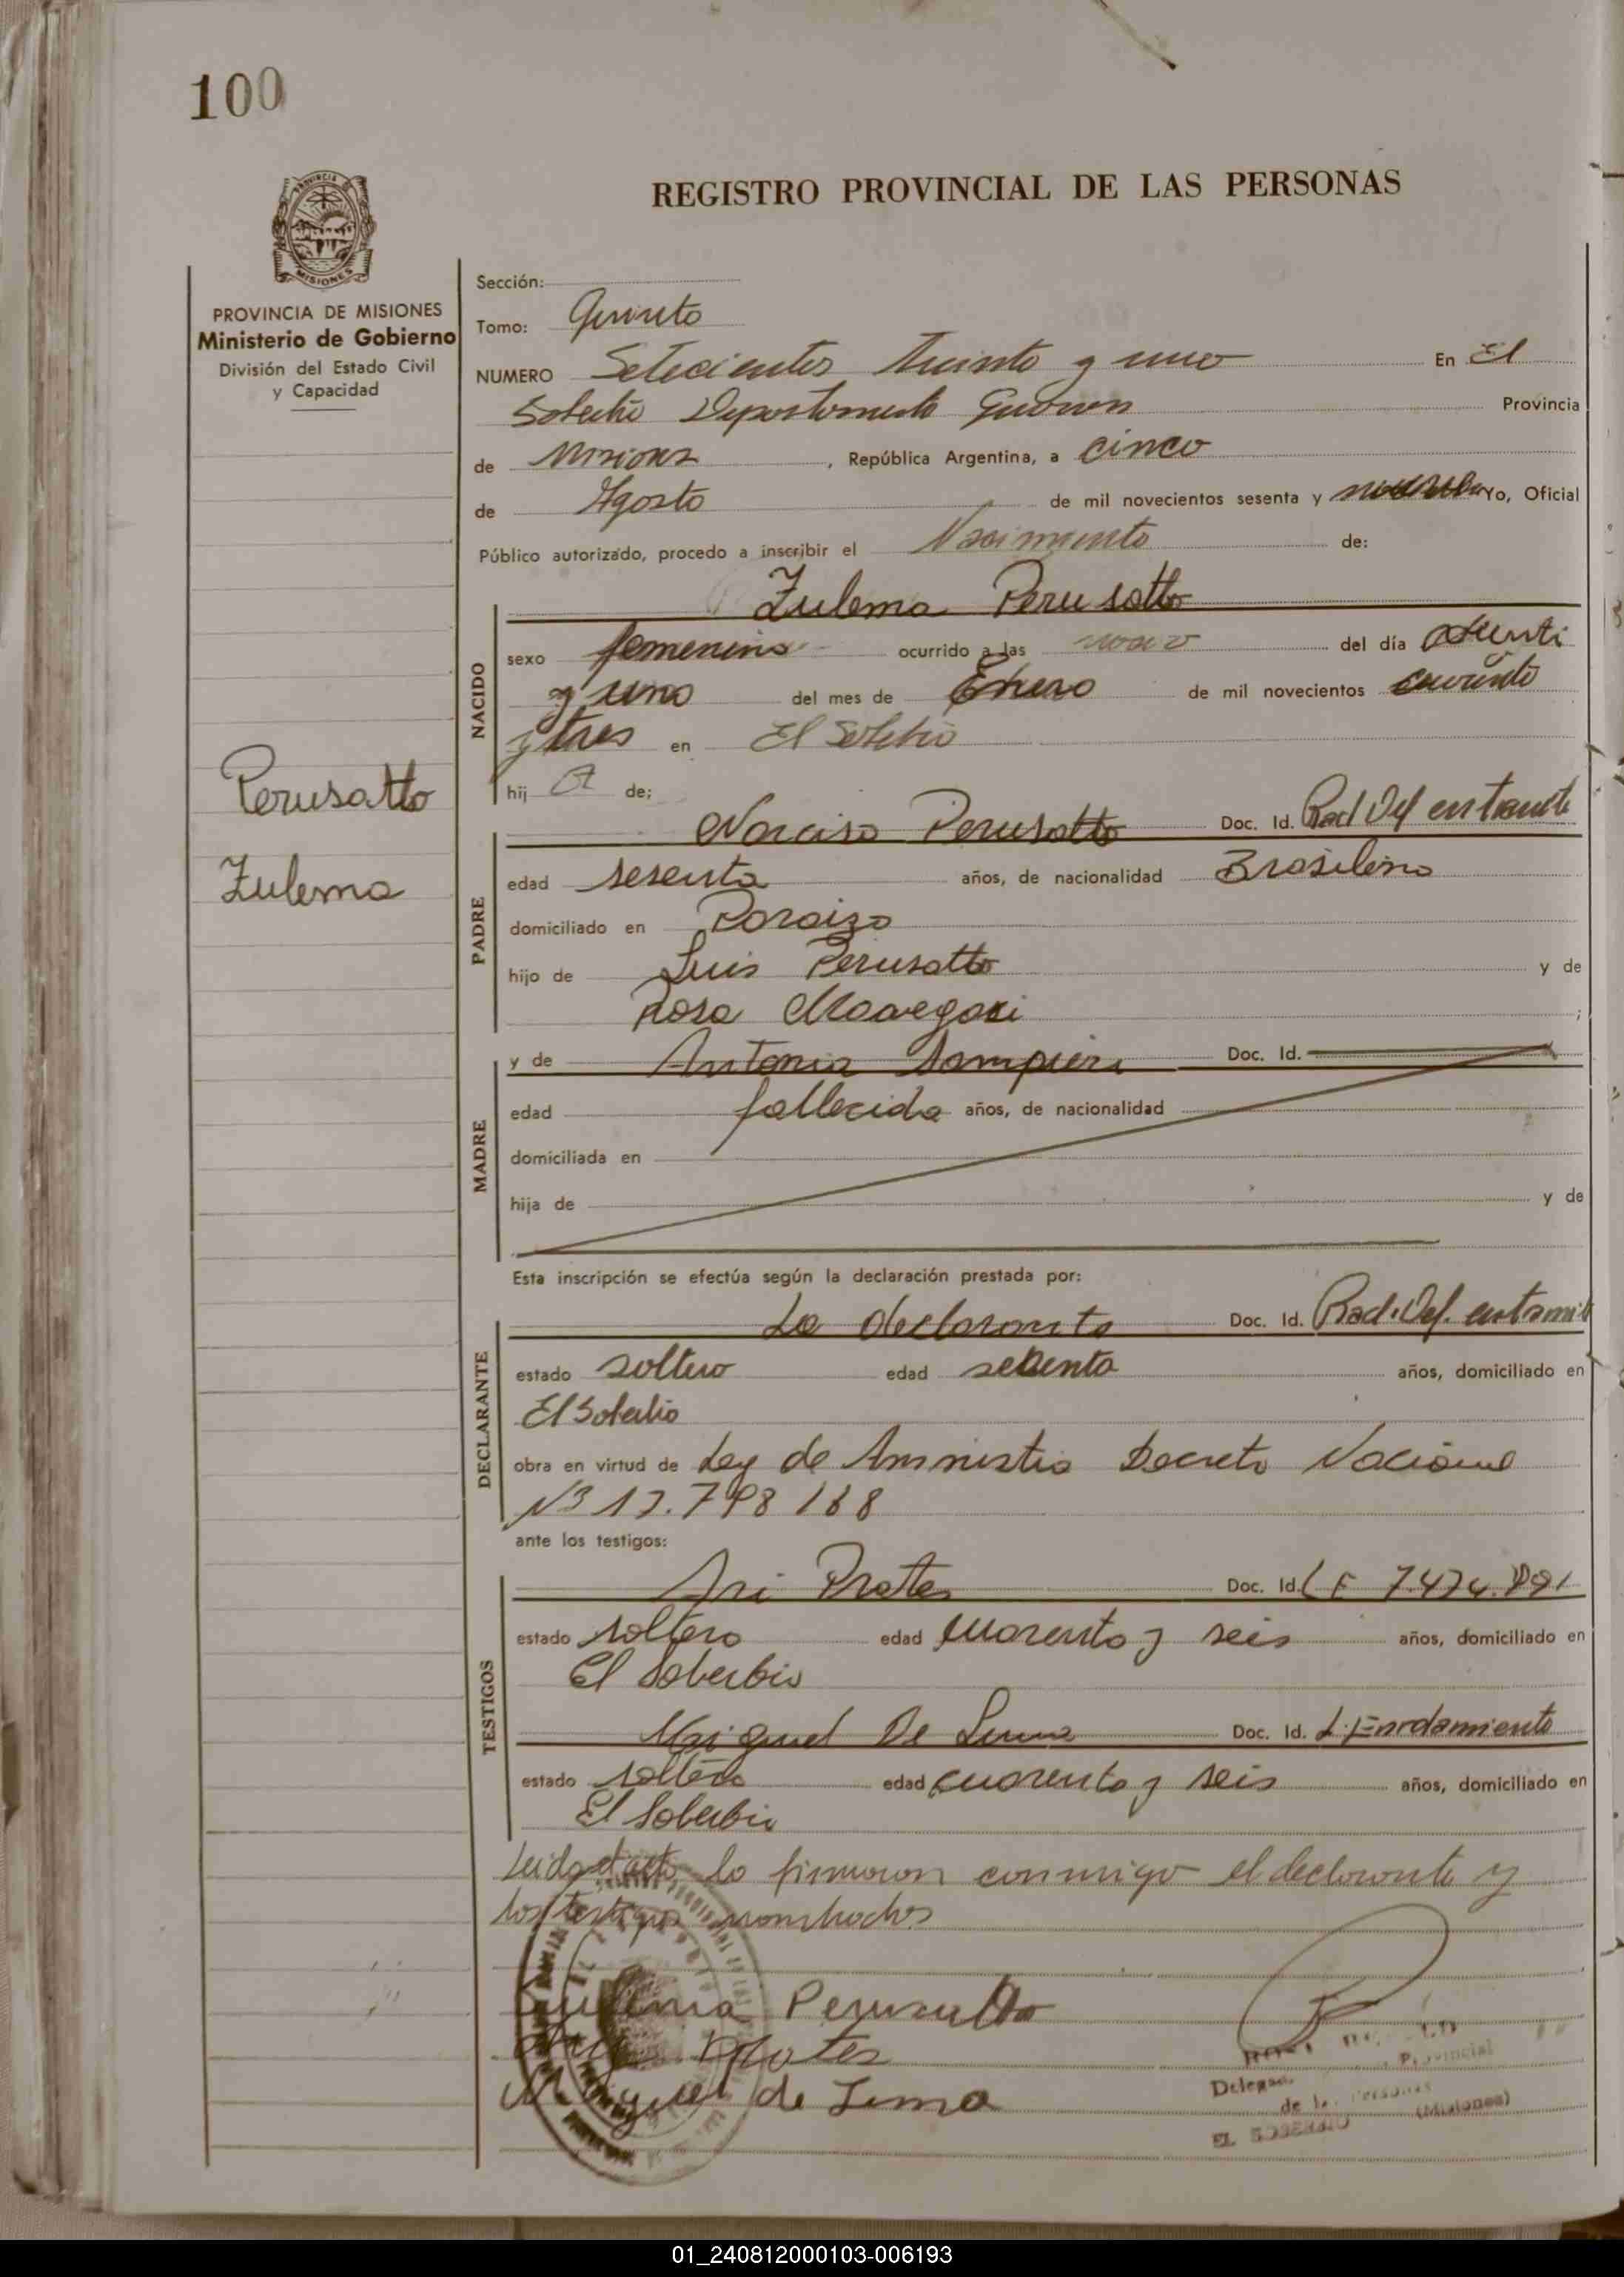 100
REGISTRO PROVINCIAL DE LAS PERSONAS
PROVINCIA DE
MISIONES
PROVINCIA DE MISIONES
Ministerio de Gobierno
División del Estado Civil
y Capacidad
Sección:
Tomo: Quinto
NUMERO Setecientos Treinta y uno En El
Soberbio Departamento Guarani Provincia
de Misiones , República Argentina, a cinco
de Agosto de mil novecientos sesenta y Yo, Oficial
Público autorizado, procedo a inscribir el Nacimiento de:
Zulema Perusatto
NACIDO
sexo femenino ocurrido a las del día
y uno del mes de Enero de mil novecientos cuarenta
y tres en El Soberbio
hij a de;
Perusatto
Zulema
PADRE
Narciso Perusatto Doc. Id. Rad Def en tramite
edad sesenta años, de nacionalidad Brasileño
domiciliado en Paraizo
hijo de Luis Perusatto y de
Rosa ;
MADRE
y de Antonia Sampieri Doc. Id.
edad fallecida años, de nacionalidad
domiciliada en
hija de y de
Esta inscripción se efectúa según la declaración prestada por:
DECLARANTE
La declarante Doc. Id. Rad. Def. en tramite
estado soltero edad años, domiciliado en
El Soberbio
obra en virtud de Ley de Amnistia Decreto Nacional
ante los testigos:
TESTIGOS
Ari Prates Doc. Id. L E
estado soltero edad cuarenta y seis años, domiciliado en
El Soberbio
Miguel De Lima Doc. Id. L. Enrolamiento
estado soltero edad cuarenta y seis años, domiciliado en
El Soberbio
Leida el acta la firmaron conmigo el declarante y
los testigos nombrados
Zulema Perusatto
Prates
Miguel de Lima
Provincial
de la Personas
(Misiones)
EL SOBERBIO
01_240812000103-006193